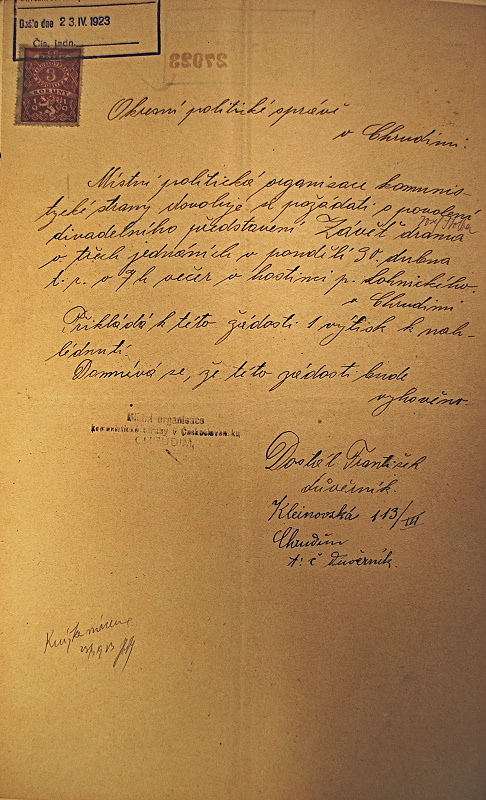 Došlo dne 23. IV. 1923
Čís. jedn.
3
Okresní politické správě
v Chrudimi.
Místní politická organisace komunis-
tycké strany dovoluje si požádati o povolení
divadelního představení Závěť drama
o třech jednáních v pondělí 30. dubna
t. r. o 7 h večer v hostinci p. Lohnického
v Chrudimi
Přikládá k této žádosti 1 výtisk k nah-
lédnutí.
Domnívá se, že této žádosti bude
vyhověno.
Místní organisace
komunistické strany v Československu
CHRUDIM.
Dostál František
důvěrník.
Kleinovská 113/III
Chrudim
t: č důvěrník.